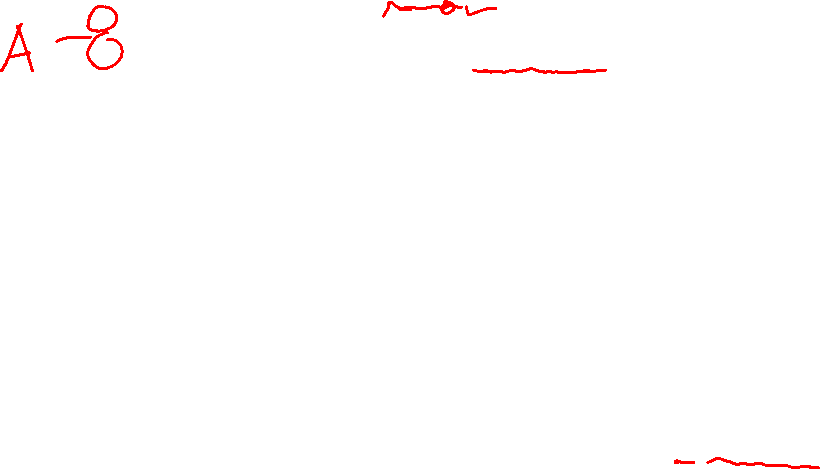 A - 8